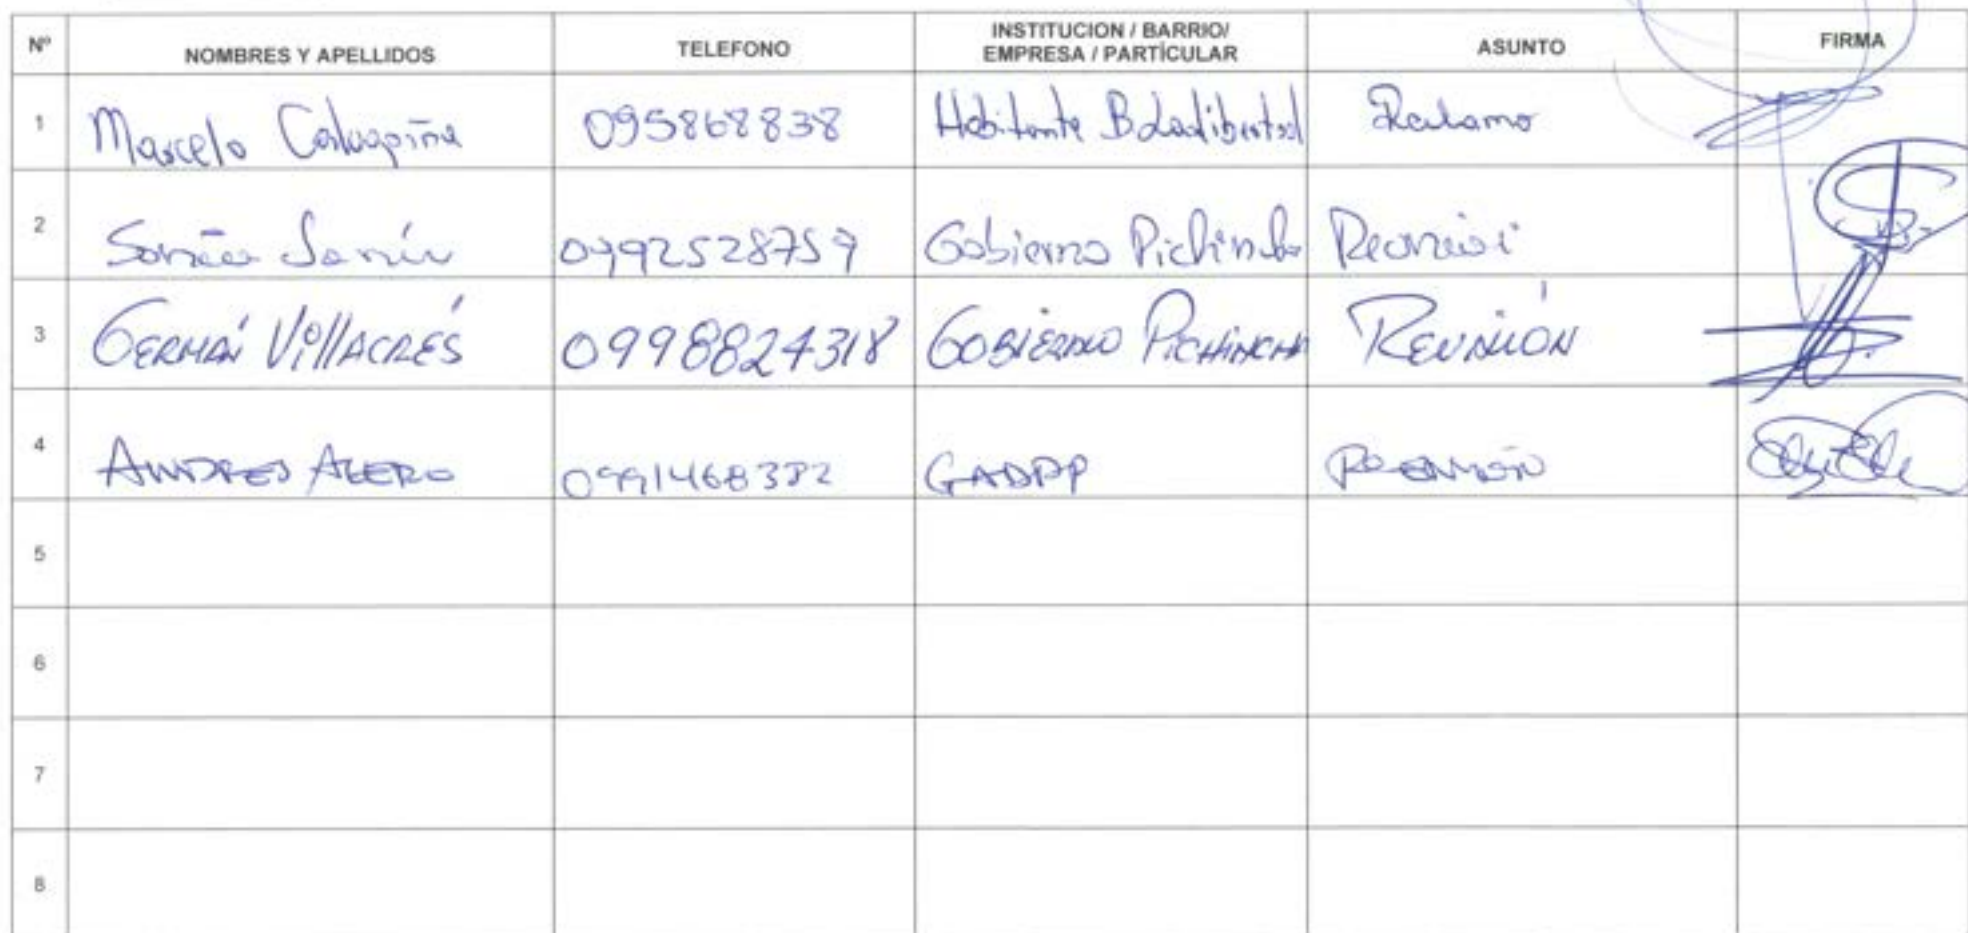 Nº NOMBRES Y APELLIDOS TELEFONO INSTITUCION / BARRIO/ EMPRESA / PARTÍCULAR ASUNTO FIRMA
1 Marcelo 095868838 Habitante B. La Libertad Reclamo
2 Sonia 0992528759 Gobierno Pichincha Reunión
3 GERMÁN VIllACRÉS 0998824318 GOBIERNO PICHINCHA REUNIÓN
4 ANDRES ALERO 0991468382 GADPP REUNIÓN
5
6
7
8